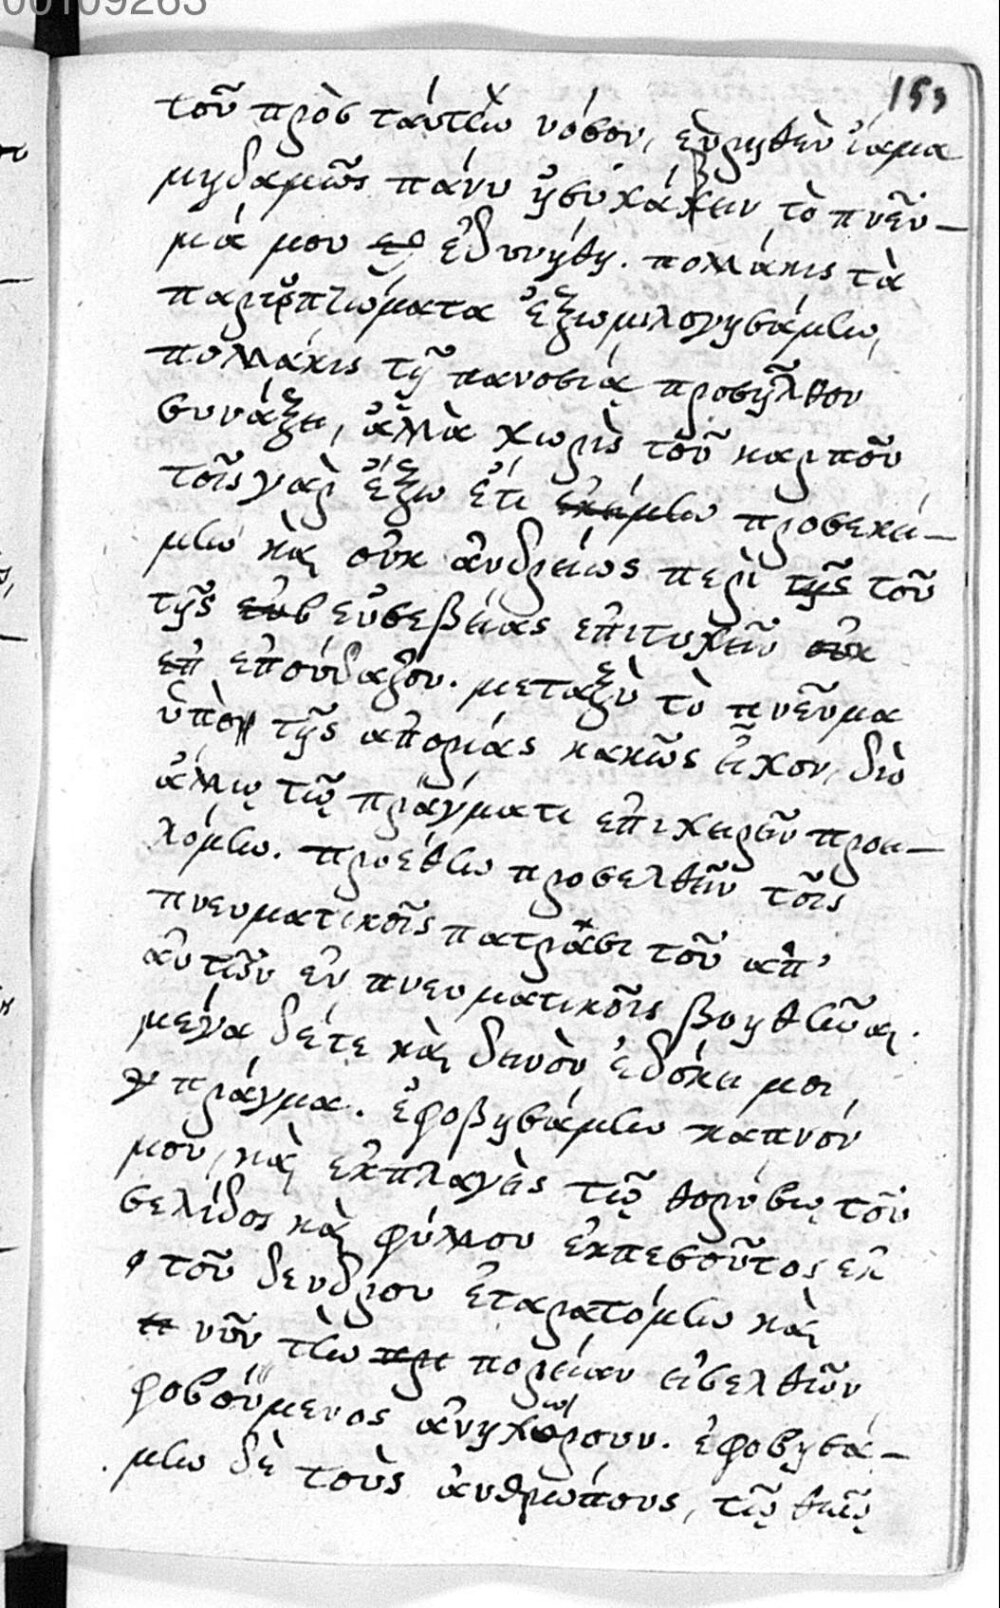 00109263
155
τοῦ πρὸς ταύτην νόσον, εὑρηθὲν ἴαμα
μηδαμῶς πάνυ ἡσυχάζειν τὸ πνεῦ-
μά μου ἐδυνήθη. πολλάκις τὰ
παραπτώματα ἐξωμολογησάμην,
πολλάκις τῇ πανοσίᾳ προσῆλθον
συνάξει, ἀλλὰ χωρὶς τοῦ καρποῦ
τοῖς γὰρ ἔξω ἔτι ἐκείμην προσεκεί-
μην καὶ οὐκ ἀνδρείως περὶ τῆς τοῦ
τῆς εὐσ εὐσεβείας ἐπιτυχεῖν οὐκ
ἐπ ἐσπούδαζον. μεταξὺ τὸ πνεῦμα
ὑπὸ τῆς ἀπορίας κακῶς εἶχον, διὸ
ἄλλῳ τῷ πράγματι ἐπιχειρεῖν προει-
λόμην. προέθην προσελθεῖν τοῖς
πνευματικοῖς πατράσι τοῦ ἀπ'
αὐτῶν ἐν πνευματικοῖς βοηθῆναι.
μέγα δέτε καὶ δεινὸν ἐδόκει μοι
πράγμα. ἐφοβησάμην καπνόν
μου, καὶ ἐκπλαγεὶς τῷ θορύβῳ τοῦ
σελίδος καὶ φύλλου ἐκπεσοῦτος ἐκ
τοῦ δένδρου ἐταρατόμην καὶ
νῦν τὴν πορείαν εἰσελθῶν
φοβούμενος ἀνηχώρουν. ἐφοβησά-
μην δὲ τοὺς ἀνθρώπους, τῷ θεῷ